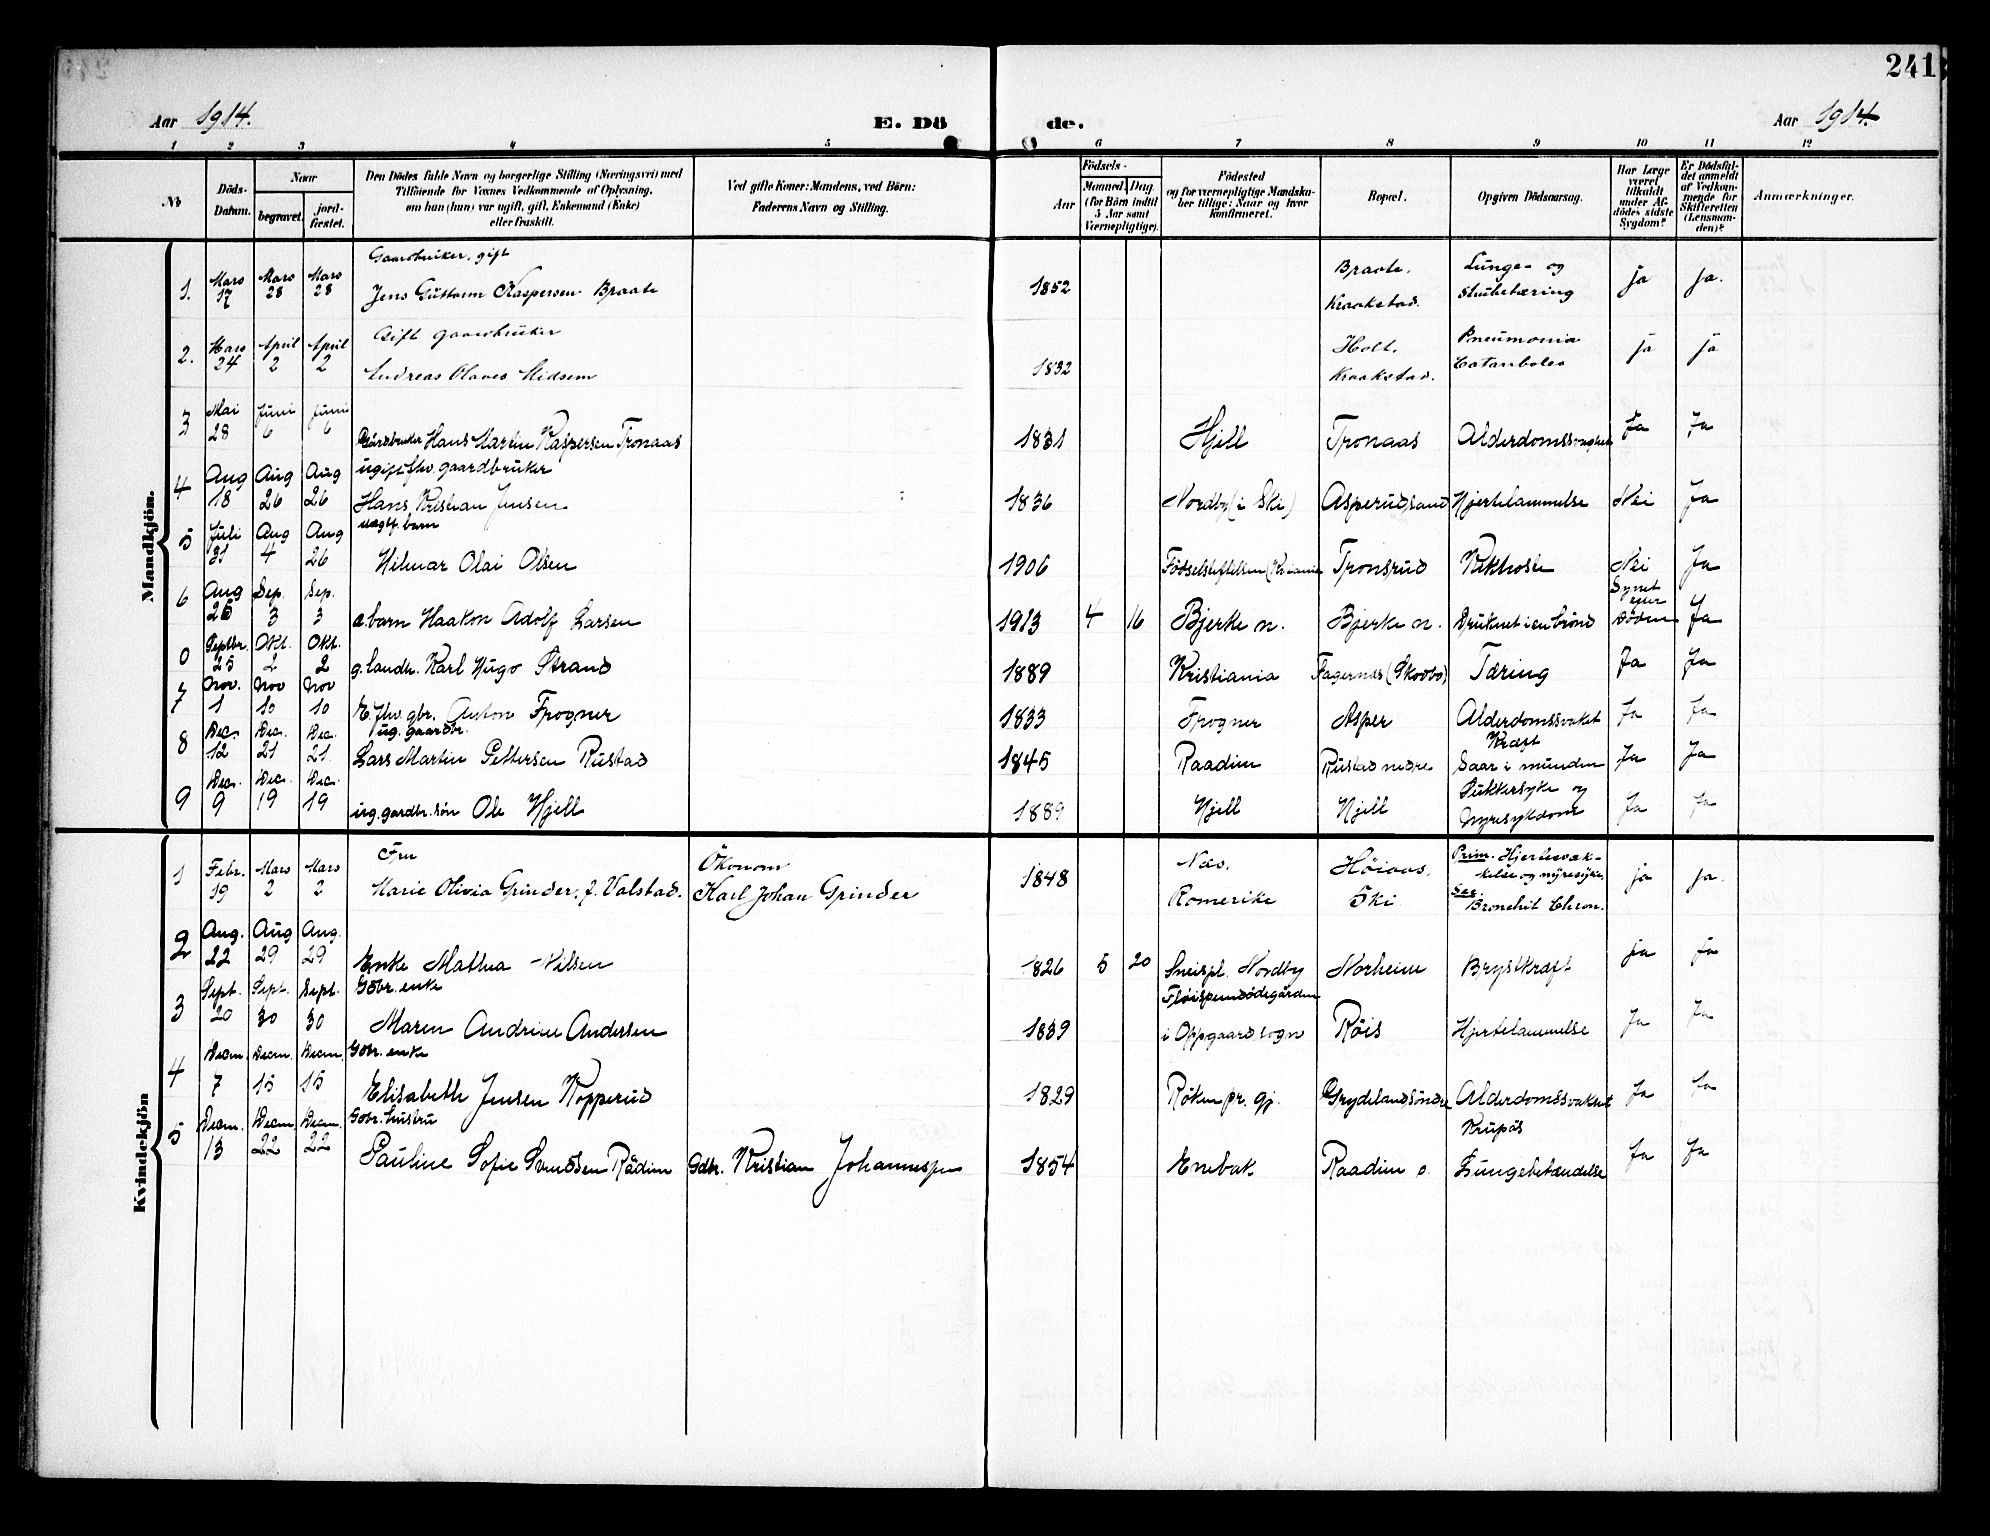 241
Aar 1914. E. Döde. Aar 1914.
1 2 3 4 5 6 7 8 9 10 11 12
No
Döds-Datum.
Naar
begravet. jordfæstet.
Den Dödes fulde Navn og borgerlige Stilling (Næringsvei) med
Tilföiende for Voxnes Vedkommende af Oplysning,
om han (hun) var ugift, gift, Enkemand (Enke)
eller fraskilt.
Ved gifte Koner: Mandens, ved Börn:
Faderens Navn og Stilling.
Födsels-
Aar Maaned. Dag.
(for Börn indtil
5 Aar samt
Værnepligtige).
Födested
og for værnepligtige Mandska-
ber tillige: Naar og hvor
konfirmeret.
Bopæl.
Opgiven Dödsaarsag.
Har Læge
været
tilkaldt
under Af-
dödes sidste
Sygdom?
Er Dödsfal-
det anmeldt
af Vedkom-
mende for
Skifteretten
(Lensman-
den)?
Anmærkninger.
Mandkjön.
Gaardbruker, gift
1. Mars 17 Mars 28 Mars 28 Jens Guttorm Kaspersen Braate 1852 Braate. Kraakstad. Lunge- og Strubetæring ja ja.
Gift gaardbruker
2. Mars 24 April 2 April 2 Andreas Olaves Midsem 1832 Holt. Kraakstad. Pneumonia ja ja
3 Mai 28 Juni 6 Juni 6 Gårdbruker Hans Martin Kaspersen Tronaas 1831 Hjell Tronaas Alderdomssvaghet Ja Ja
ugift fhv. gaardbruker
4 Aug 18 Aug 26 Aug 26 Hans Kristian Jensen 1836 Nordby (i Ski) Asperudsand Hjertelammelse Nei Ja
uegtf. barn
5 Juli 31 Aug 4 Aug 26 Hilmar Olai Olsen 1906 Fødselstiftelsen (Kr.ania Tronsrud Kikhoste Nei Ja
6 Aug 25 Sep. 3 Sep. 3 e. barn Haakon Adolf Larsen 1913 4 16 Bjerke n. Bjerke n. Druknet i en brønd Synet efter døden Ja
0 Septbr. 25 Okt. 2 Okt. 2 g. landh. Karl Hugo Strand 1889 Kristiania Fagernæs (Skodbo) Tæring Ja Ja
7 Nov. 1 Nov 10 Nov 10 E. fhv. gbr. Anton Frogner 1833 Frogner Asper Alderdomssvaket Ja Ja
ug. gaardbr.
8 Dec. 12 Dec. 21 Dec. 21 Lars Martin Pettersen Rustad 1845 Raadim Rustad nedre Kræft Saar i munden Ja Ja
9 Dec. 9 Dec. 19 Dec. 19 ug. gardbr. søn Ole Hjell 1889 Hjell Hjell Sukkersyke og nyresykdom Ja Ja
Kvindekjön
Fru Ökonom
1 Febr. 19 Mars 2 Mars 2 Marie Olivia Grinder, f. Valstad. Karl Johan Grinder 1848 Næs. Romerike Höiaas. Ski Prim. Hjertesvækkelse og nyresyke. Sec. Bronchit Chron. ja ja.
2 Aug. 22 Aug 29 Aug. 29 Enke Mathea Nilsen 1826 5 20 Sneispl. Nordby Norheim Brystkræft ja ja
Gbr. enke
3 Sept. 20 Sept. 30 Sept. 30 Maren Andrine Andersen 1839 Fløispendødegården i Oppgaard sogn Røis Hjertelammelse Ja Ja
Gbr. enke
4 Decm. 7 Decm. 15 Decm. 15 Elisabeth Jensen Kopperud 1829 Røken pr. gj. Grydeland söndre Alderdomssvakhet Ja Ja
Gbr. hustru
5 Decm. 13 Decm. 22 Decm. 22 Pauline Sofie Svendsen Rådim Gdbr. Kristian Johannesen 1854 Enebak. Raadim o. Krupøs Lungebetændelse Ja Ja